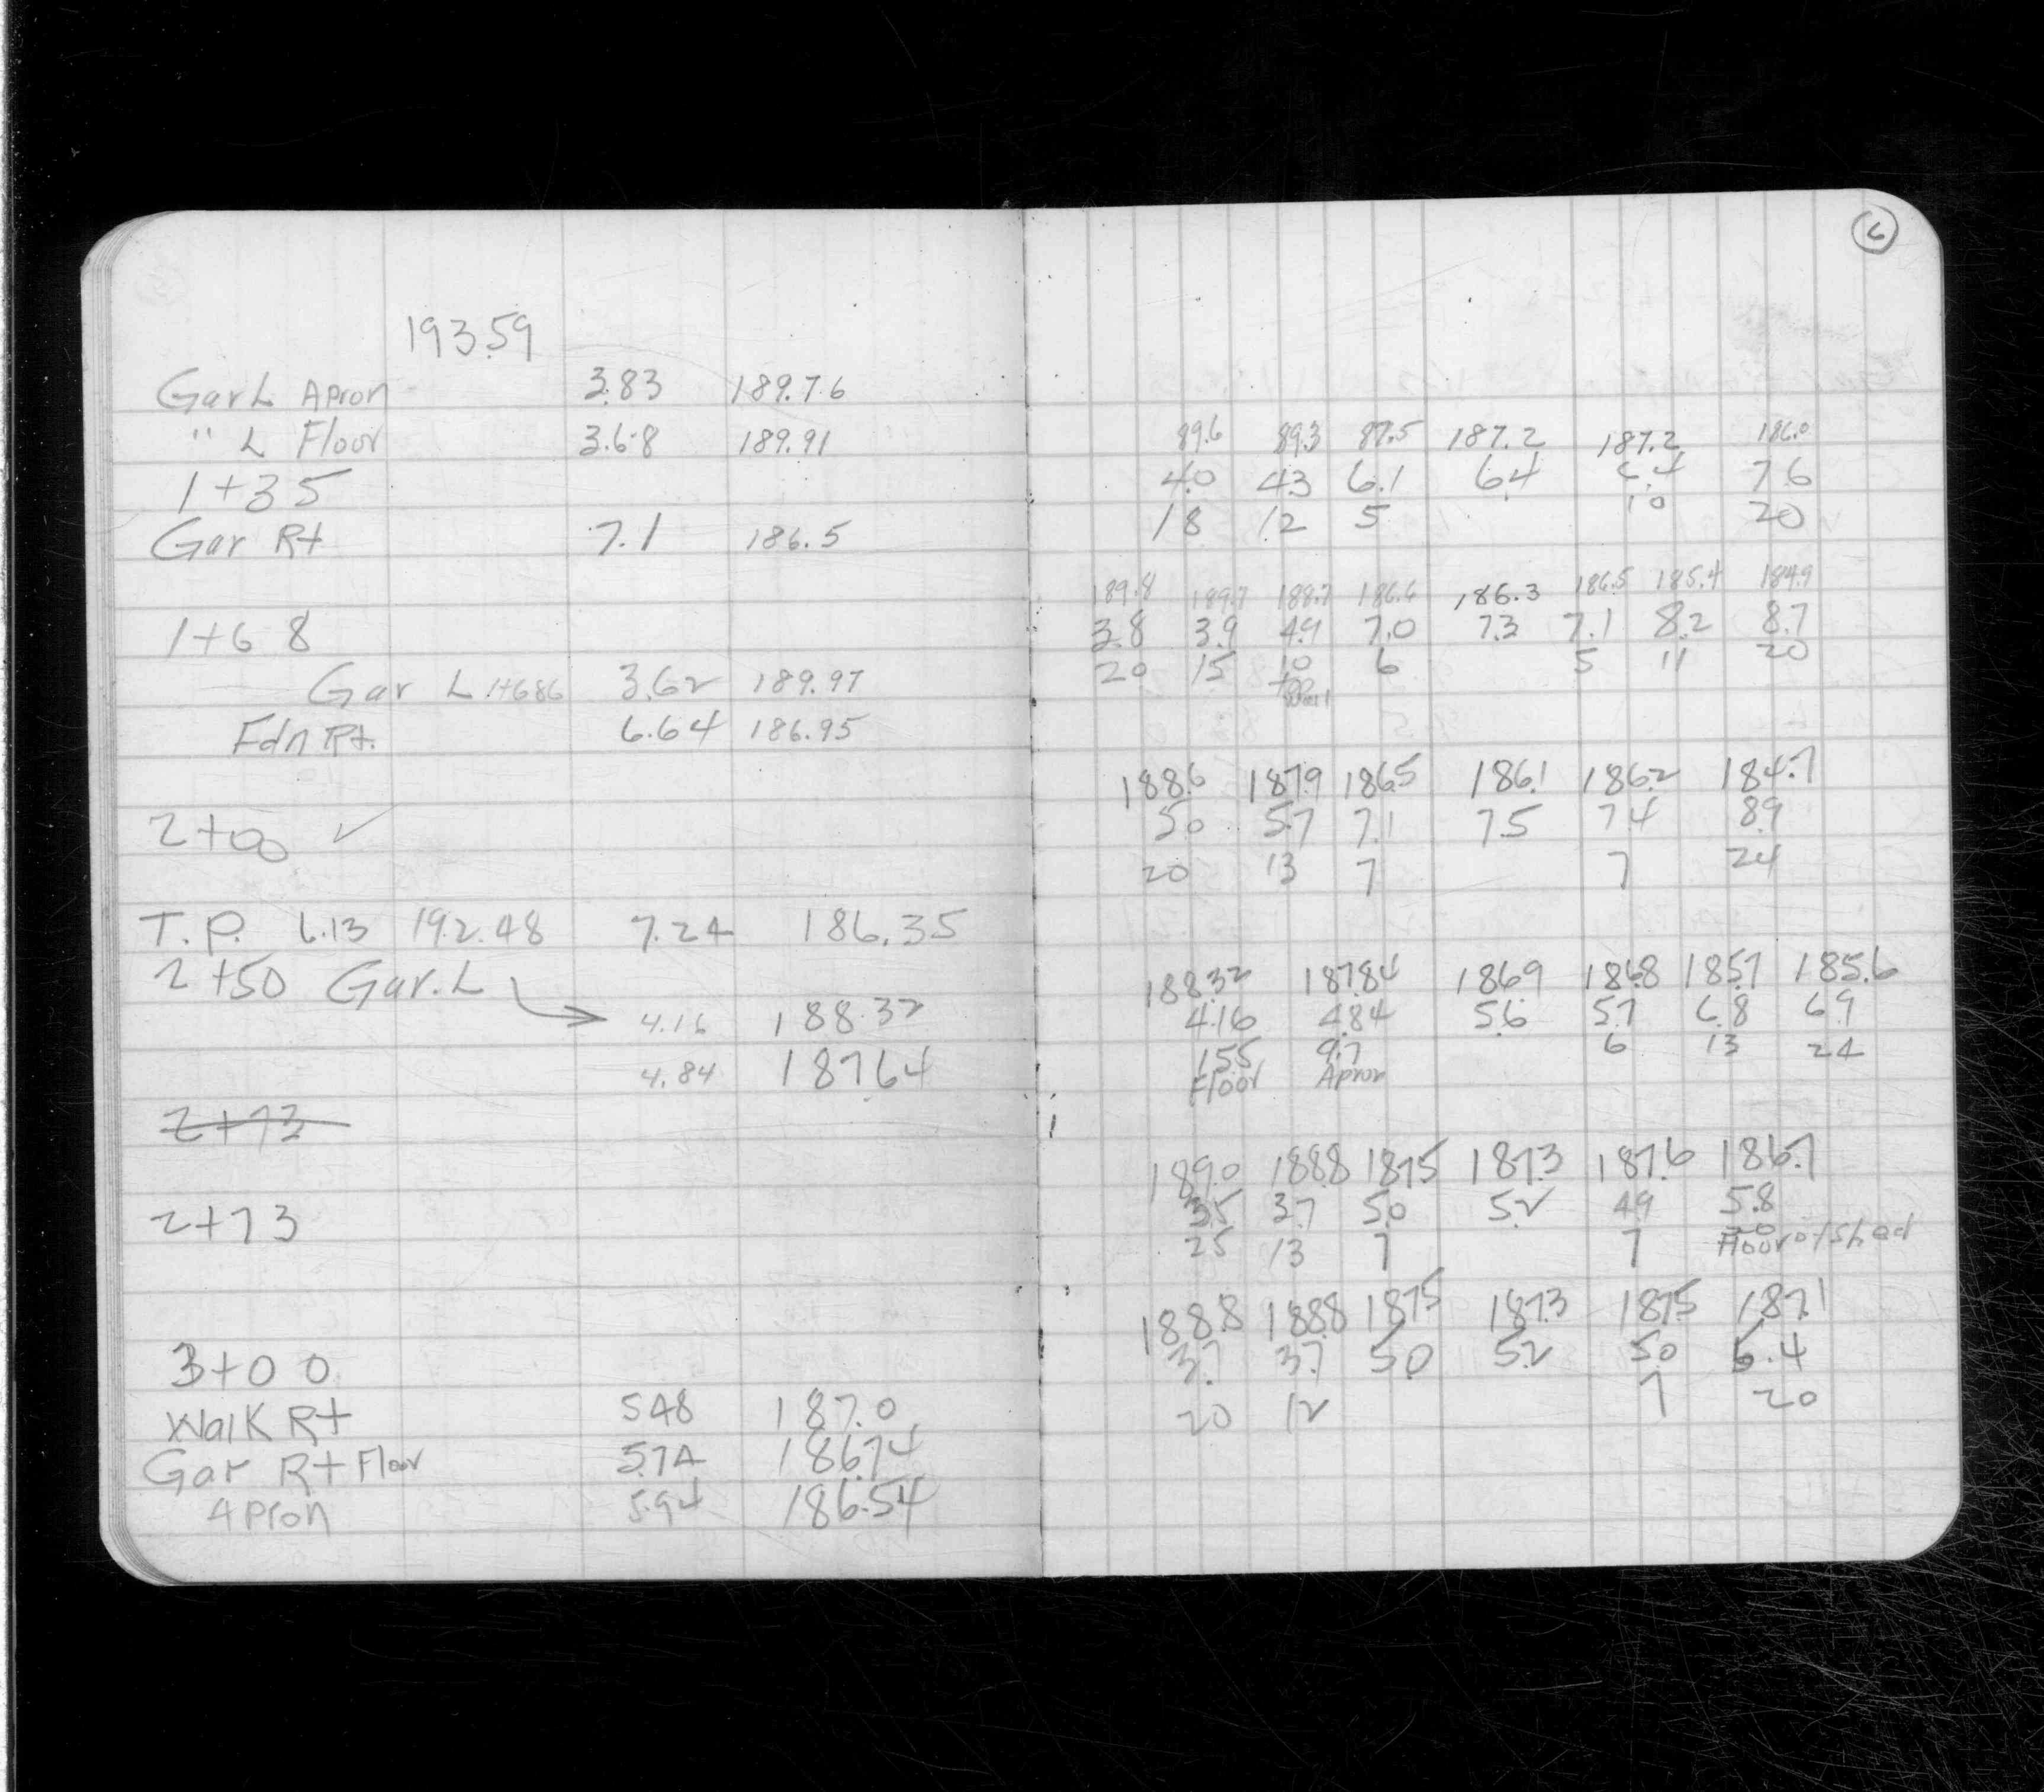 193.59
Gar L Apron 3.83 189.76
" L Floor 3.68 189.91
1+35
Gar Rt 7.1 186.5
1+68
Gar L 1+686 3.62 189.97
Fdn Rt. 6.64 186.95
2+00 ✓
T.P. 6.13 192.48 7.24 186.35
2+50 Gar. L
4.16 188.32
4.84 187.64
2+73
2+73
3+00
Walk Rt 5.48 187.0
Gar Rt Floor 5.74 186.74
Apron 5.94 186.54
6
89.6 89.3 87.5 187.2 187.2 186.0
4.0 4.3 6.1 6.4 6.4 7.6
18 12 5 10 20
189.8 189.7 188.7 186.6 186.3 186.5 185.4 184.9
3.8 3.9 4.9 7.0 7.3 7.1 8.2 8.7
20 15 10 6 5 11 20
188.6 187.9 186.5 186.1 186.2 184.7
5.0 5.7 7.1 7.5 7.4 8.9
20 13 7 7 24
188.32 187.84 186.9 186.8 185.7 185.6
4.16 4.84 5.6 5.7 6.8 6.9
15.5 9.7 6 13 24
Floor Apron
189.0 188.8 187.5 187.3 187.6 186.7
3.5 3.7 5.0 5.2 4.9 5.8
25 13 7 7 20
Floor of Shed
188.8 188.8 187.5 187.3 187.5 187.1
3.7 3.7 5.0 5.2 5.0 5.4
20 12 7 20